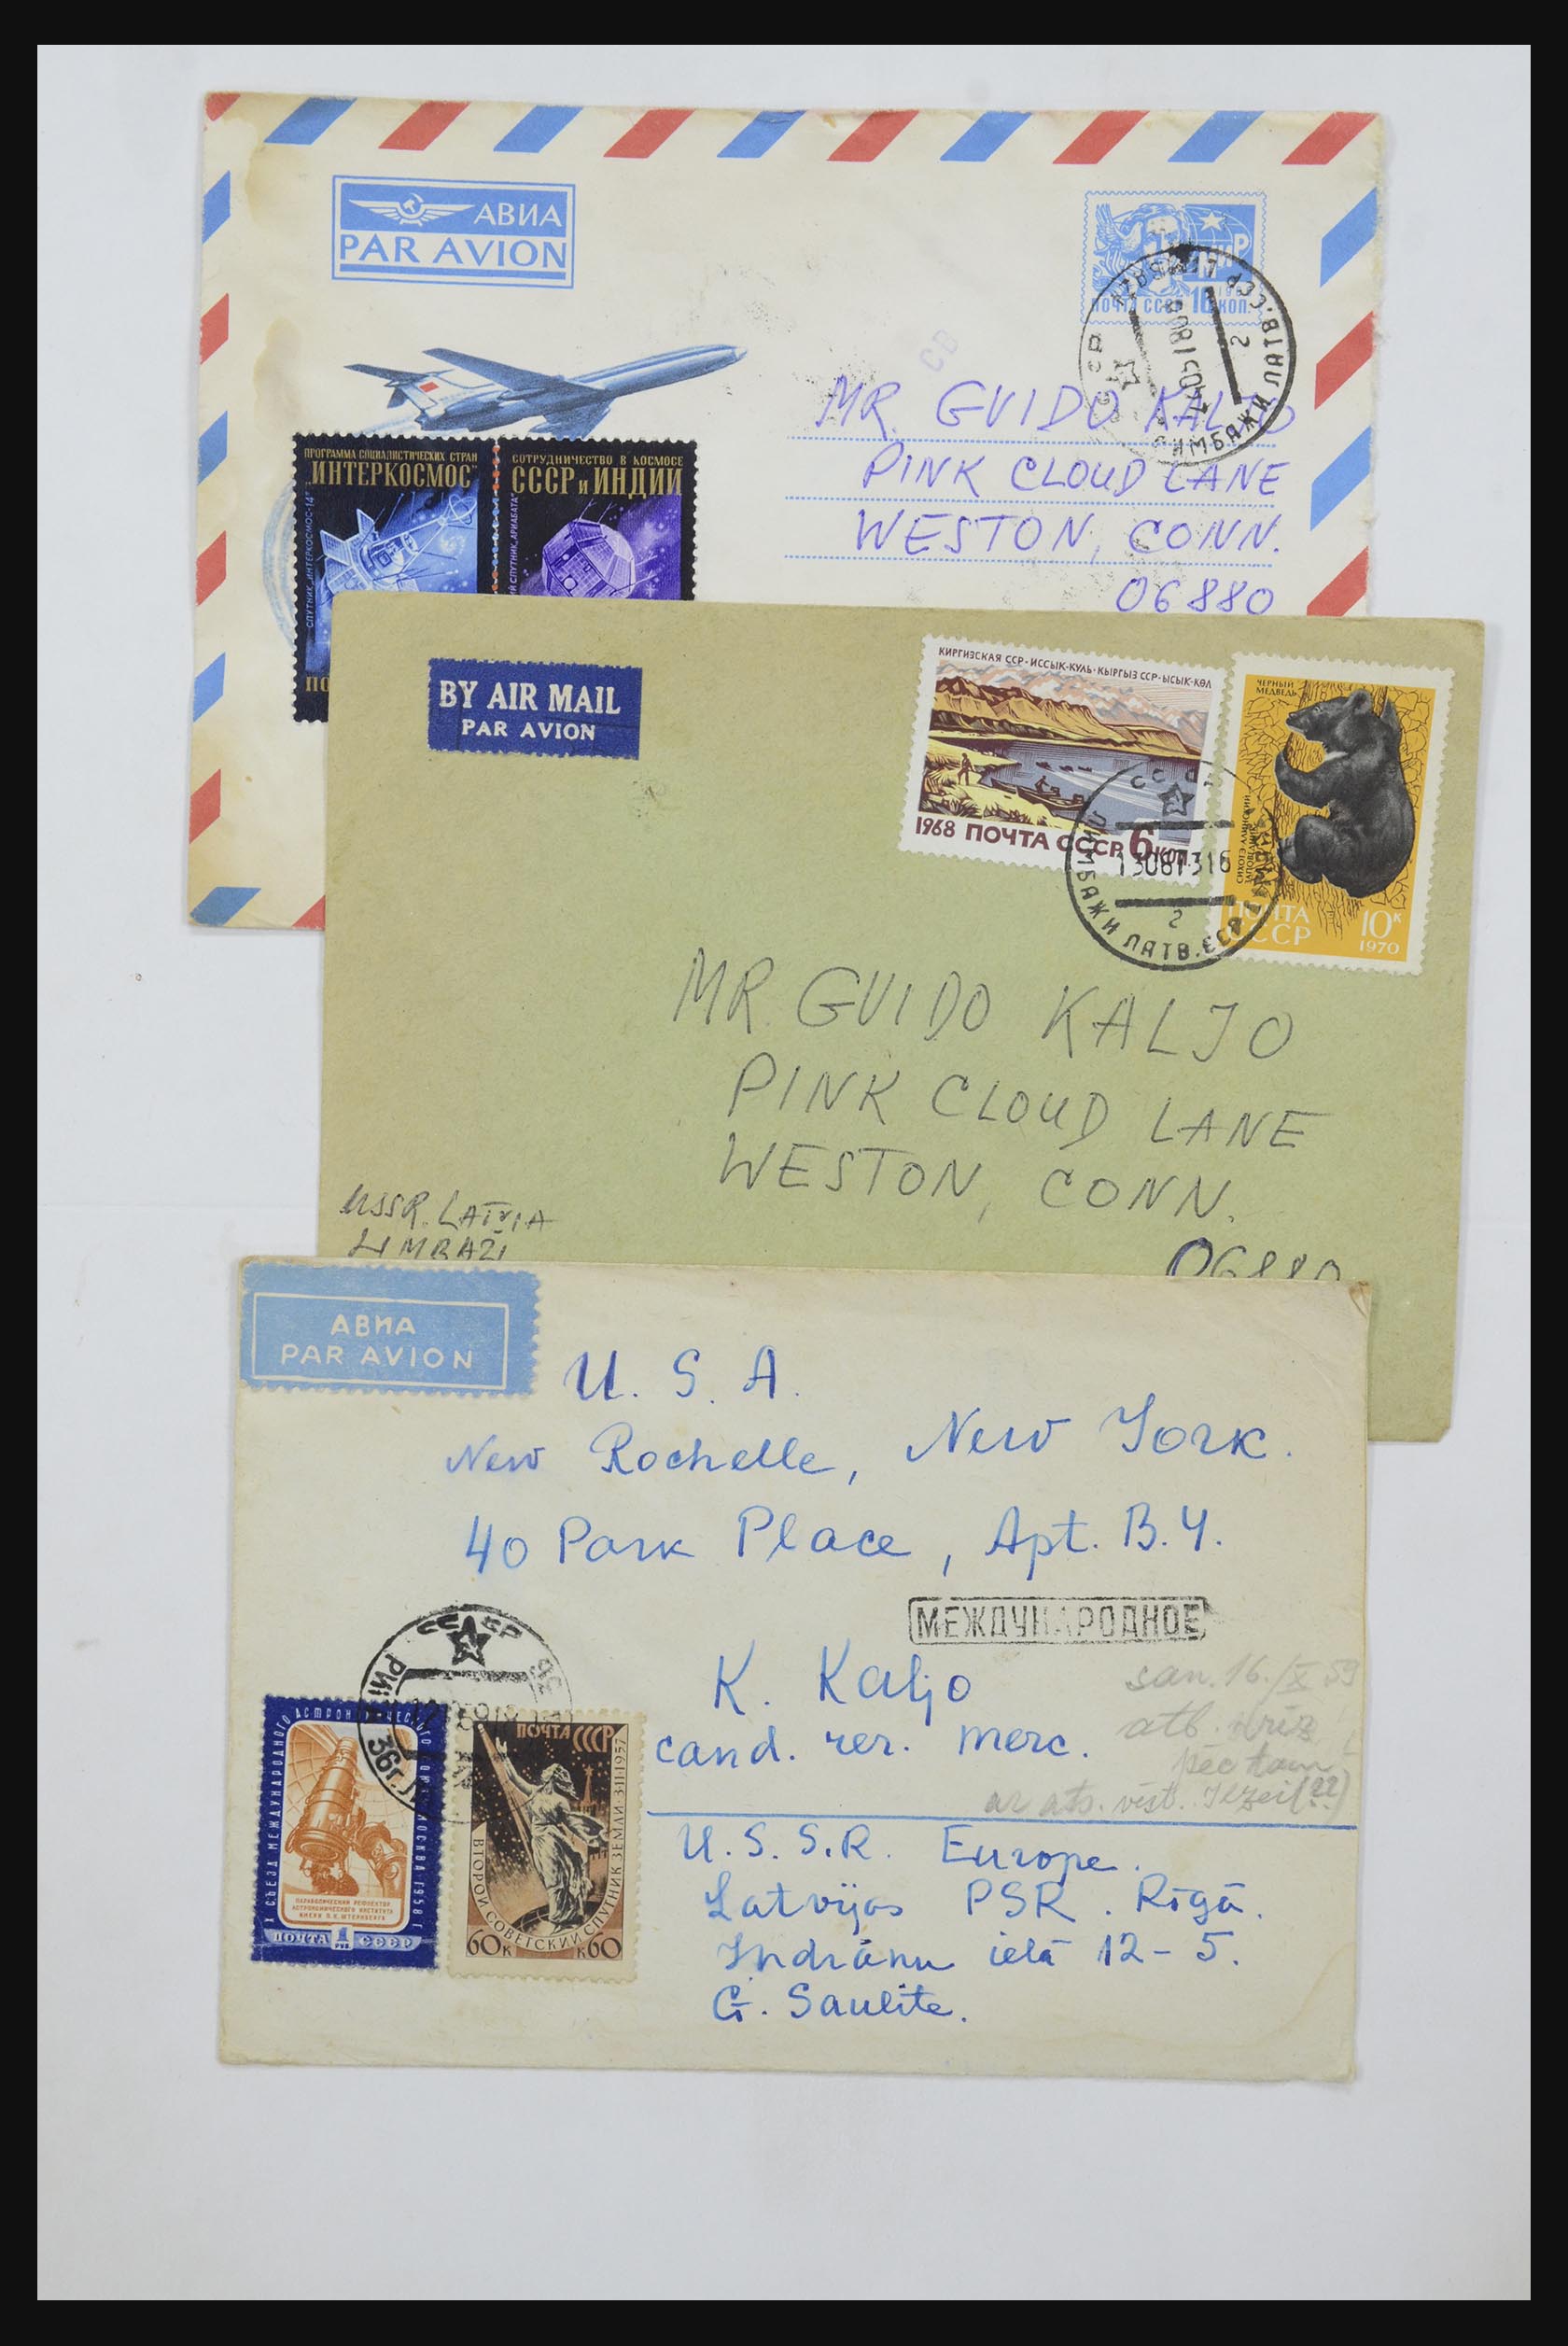 АВИА
PAR AVION
ПОЧТА СССР 16 КОП.
ЛИМБАЖИ ЛАТВ.ССР
2
ПРОГРАММА СОЦИАЛИСТИЧЕСКИХ СТРАН
"ИНТЕРКОСМОС"
СПУТНИК „ИНТЕРКОСМОС-14"
ПО
СОТРУДНИЧЕСТВО В КОСМОСЕ
СССР и ИНДИИ
СПУТНИК „АРИАБАТА"
MR. GUIDO KALJO
PINK CLOUD LANE
WESTON, CONN.
06880
BY AIR MAIL
PAR AVION
КИРГИЗСКАЯ ССР · ИССЫК-КУЛЬ · КЫРГЫЗ ССР · ЫСЫК-КӨЛ
1968 ПОЧТА СССР 6 КОП.
ЧЕРНЫЙ
МЕДВЕДЬ
СИХОТЭ-АЛИНСКИЙ
ЗАПОВЕДНИК
ПОЧТА
СССР
10к
1970
СССР
13087316
2
ЛИМБАЖИ ЛАТВ.ССР
MR. GUIDO KALJO
PINK CLOUD LANE
WESTON, CONN.
06880
USSR. LATVIA
LIMBAŽI
АВИА
PAR AVION
U. S. A.
New Rochelle, New York.
40 Park Place, Apt. B.4.
МЕЖДУНАРОДНОЕ
K. Kaljo
cand. rer. merc.
san. 16./X 59
atb.
ar ats. vēst.
СССР
X СЪЕЗД МЕЖДУНАРОДНОГО АСТРОНОМИЧЕСКОГО СОЮЗА · МОСКВА · 1958 г.
ПАРАБОЛИЧЕСКИЙ РЕФЛЕКТОР
АСТРОНОМИЧЕСКОГО ИНСТИТУТА
ИМЕНИ П.К. ШТЕРНБЕРГА
ПОЧТА 1 РУБ СССР
ПОЧТА СССР
ВТОРОЙ СОВЕТСКИЙ СПУТНИК ЗЕМЛИ 3·11·1957
60к к60
U. S. S. R. Europe.
Latvijas PSR. Rīgā.
Indrānu ielā 12-5.
G. Saulīte.